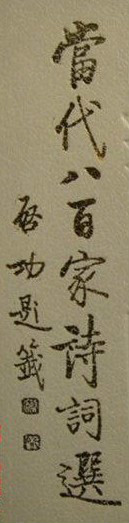 當代八百家詩詞選
啓功題籤